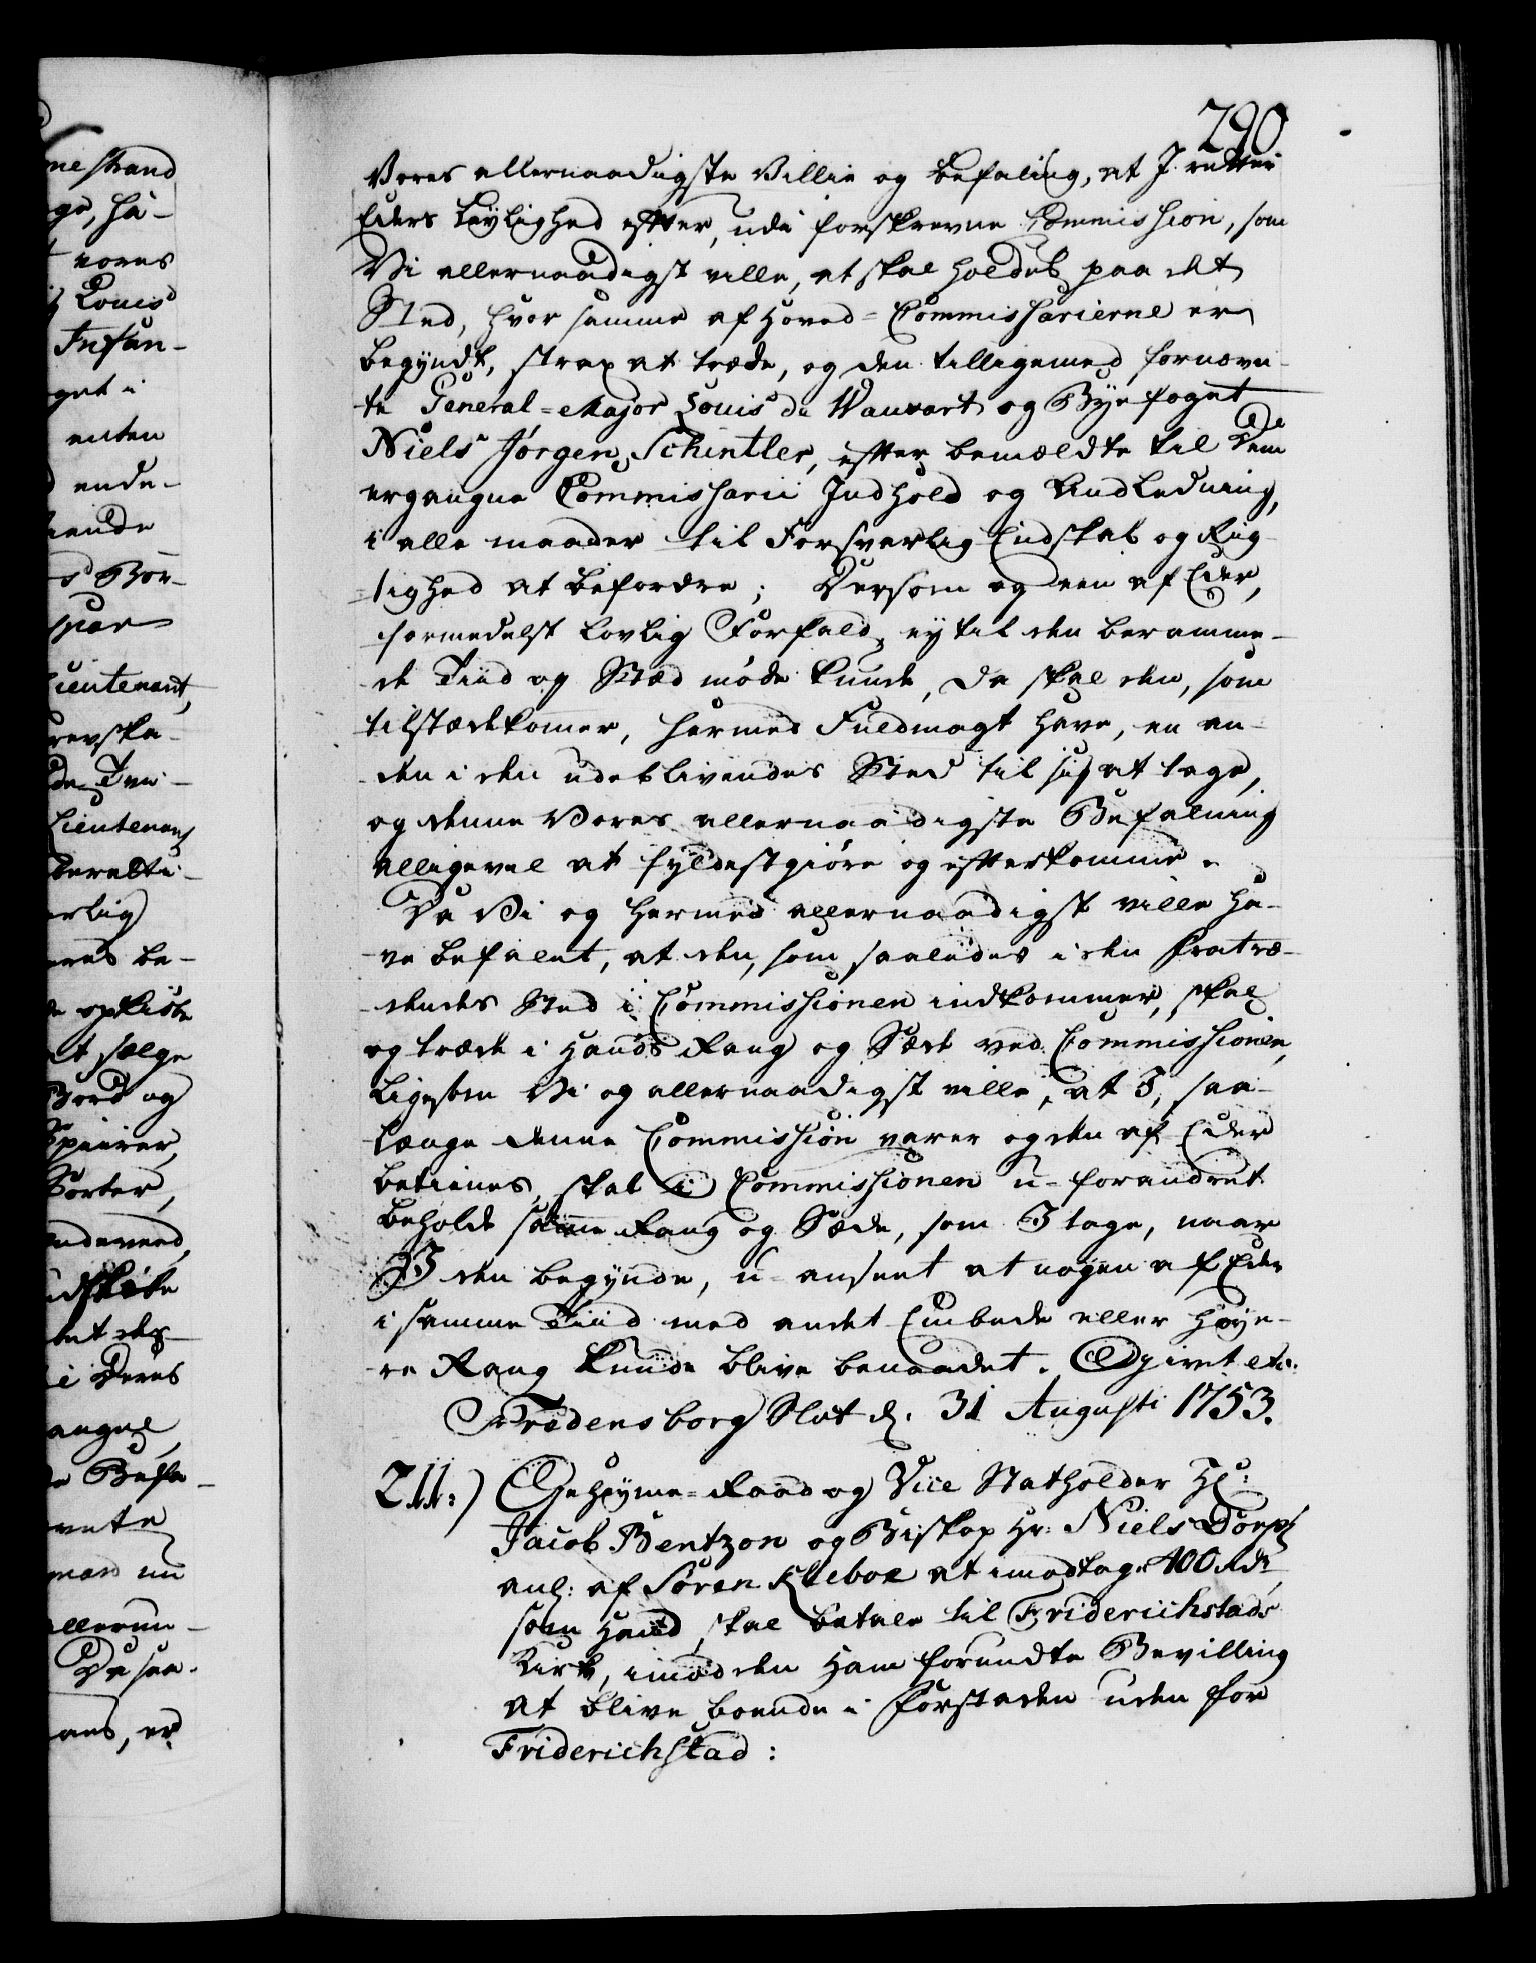 290
Vores allernaadigste Villie og befaling, at I retter
Eders Leylighed efter, udi forskrevne Commission, som
Vi allernaadigst ville, at skal holdes paa det
Sted, hvor samme af Hoved-Commissarierne er
begyndt, strax at træde, og den tilligemed fornævn-
te General-Major Louis de og Byefoget
Niels Jørgen Schintler, efter bemældte til Dem
ergangne Commissarii Indhold og Andledning,
i alle maader til Forsvarlig Endskab og Rig-
tighed at befordre; Dersom og een af Eder,
formedelst lovlig Forfald, ey til den beramme-
de Tiid og Stæd møde kunde, da skal den, som
tilstædekomer, hermed Fuldmagt have, en an-
den i den udeblivendes Sted til sig at tage,
og denne Vores allernaadigste Befalning
alligevel at fyldestgiøre og efterkomme.
Da Vi og hermed allernaadigst ville ha-
ve befalet, at den, som saaledes i den fratræ-
dendes Sted i Commissionen indkommer, skal
og træde i Hands Rang og Sæde ved Commissionen,
Ligesom Vi og allernaadigst ville, at I, saa-
længe denne Commission varer og den af Eder
betienes, skal i Commissionen u-forandret
beholde samme Rang og Sæde, som I tage, naar
I den begynde, u-anseet at nogen af Eder
i samme Tiid med andet Embede eller Høye-
re Rang kunde blive benaadet. Og givet etc:
Fredensborg Slot d. 31 Augusti 1753.
211:) Geheyme-Raad og Vice Statholder Hr:
Jacob Bentzon og Biskop Hr: Niels Dorph
anl: af Søren Kleboe at imodtage 400 Rdr
som Hand skal betale til Friderichstads
Kirke, imod den Ham forundte Bevilling
at blive boende i Forstaden uden for
Friderichstad:
nestrand
ge, ha-
vores
Louis
Infan-
get i
enten
ende-
s Bor-
Lieutenant,
de Tre-
Lieutenant
erlig
eres be-
opkiøbe
at sælge
Bord og
Speirer,
Sorter,
udskibe
i Deres
angne
Befa-
mand nu
allerun-
Da saa-
ans, er